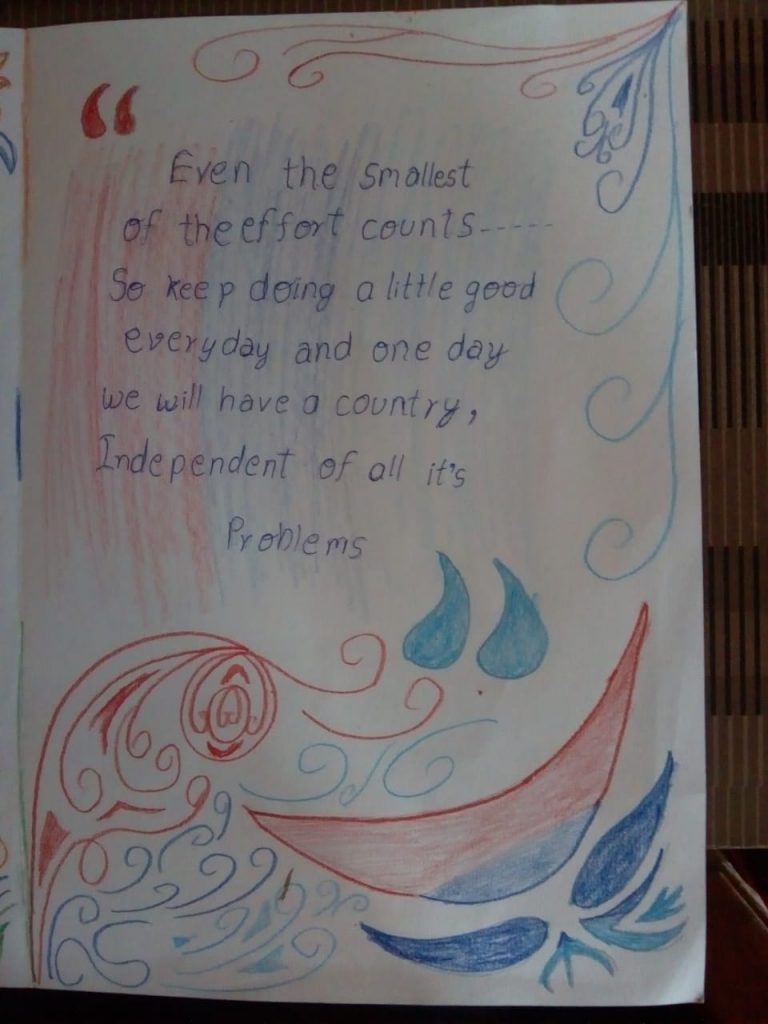 “
Even the smallest
of the effort counts-----
So keep doing a little good
everyday and one day
we will have a country,
Independent of all it's
Problems
”